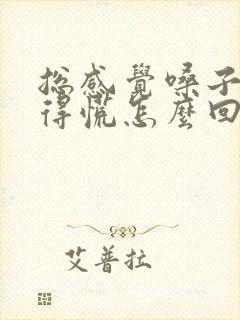 总感覺嗓子
得慌怎麼回
艾普拉